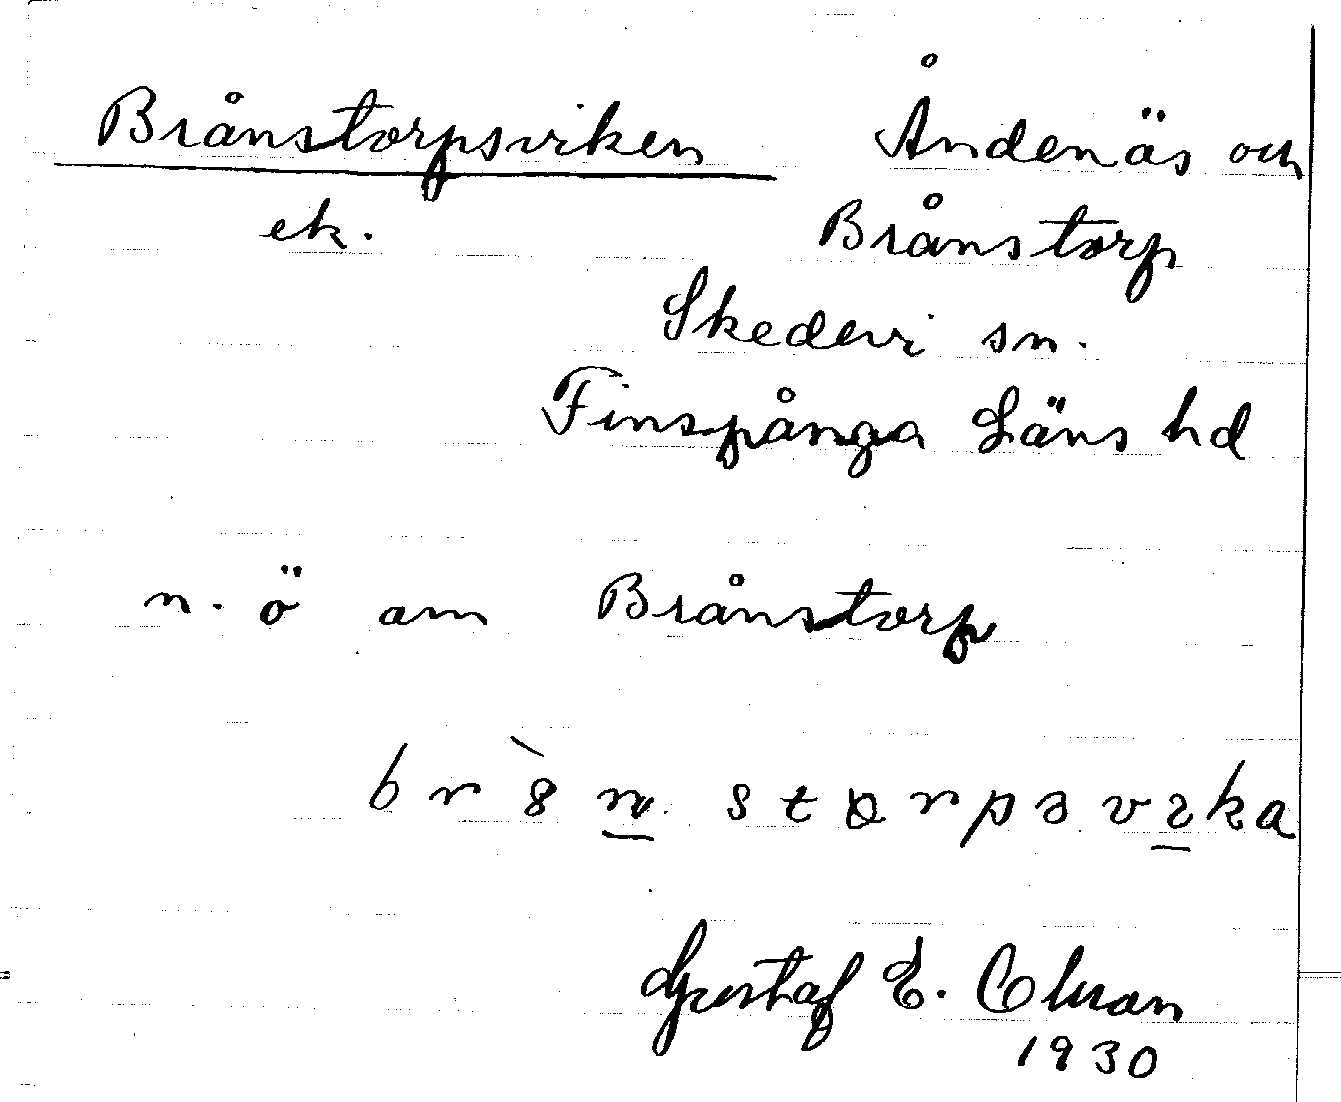 Brånstorpsviken Åndenäs och
ek. Brånstorp
Skedevi sn.
Finspånga Läns hd
n. ö om Brånstorp
Gustaf E. Olsson
1930